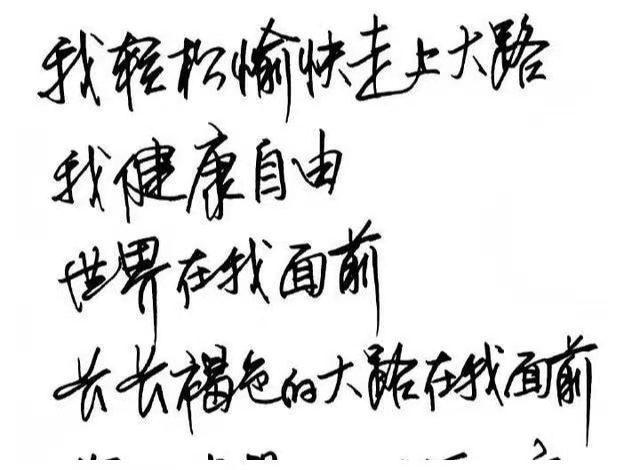 我轻松愉快走上大路
我健康自由
世界在我面前
长长褐色的大路在我面前